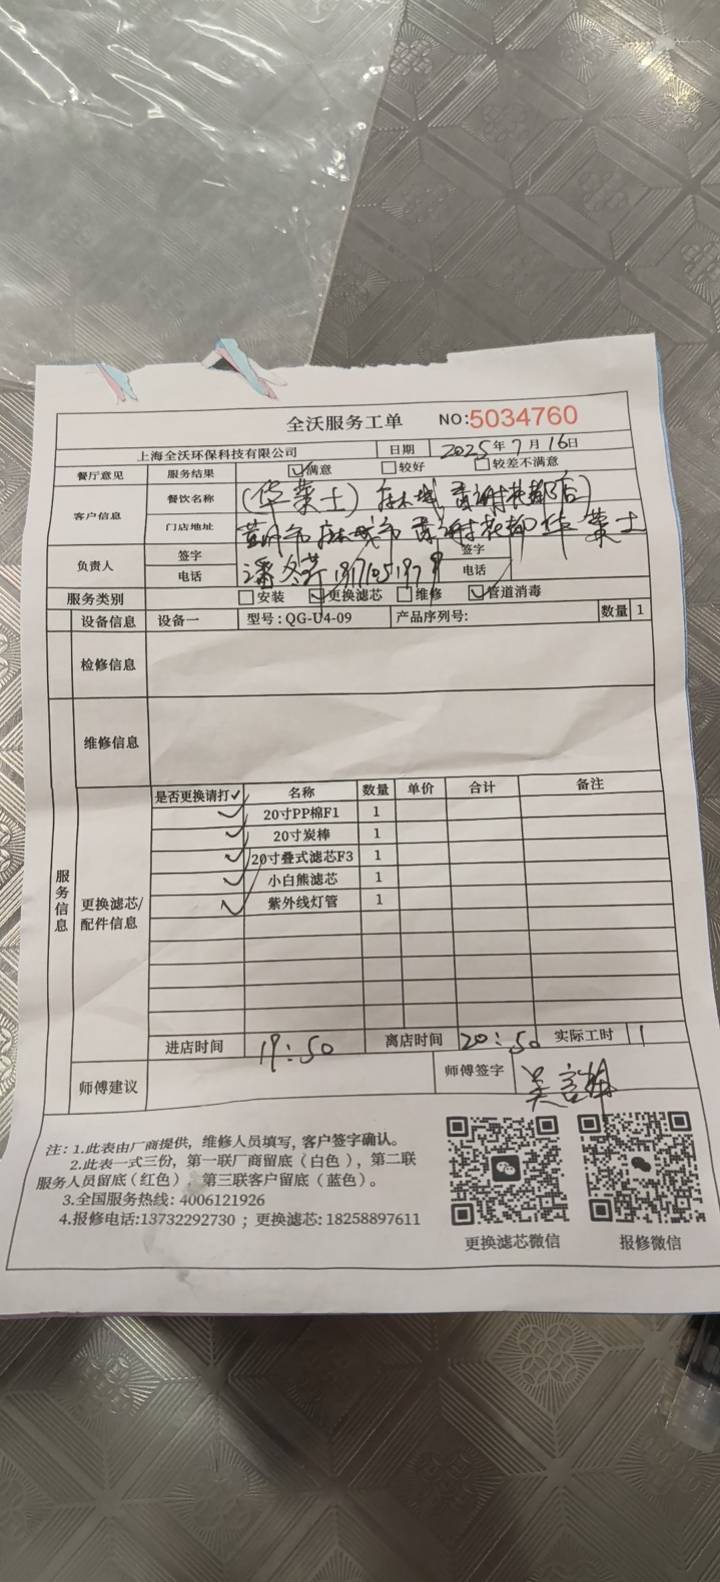 全沃服务工单 NO:5034760
上海全沃环保科技有限公司 日期 2025年7月16日
餐厅意见 服务结果 ☑满意 □较好 □较差不满意
客户信息 餐饮名称 (华莱士)麻城 店
门店地址 黄冈市麻城市 华莱士
负责人 签字 潘冬芹 签字
电话 电话
服务类别 □安装 ☑更换滤芯 □维修 ☑管道消毒
设备信息 设备一 型号:QG-U4-09 产品序列号: 数量 1
检修信息
维修信息
服务信息
更换滤芯/配件信息
是否更换请打✓ 名称 数量 单价 合计 备注
✓ 20寸PP棉F1 1
✓ 20寸炭棒 1
✓ 20寸叠式滤芯F3 1
✓ 小白熊滤芯 1
✓ 紫外线灯管 1
进店时间 19:50 离店时间 20:50 实际工时 1
师傅建议 师傅签字 吴
注:1.此表由厂商提供,维修人员填写,客户签字确认。
2.此表一式三份,第一联厂商留底(白色),第二联
服务人员留底(红色) 第三联客户留底(蓝色)。
3.全国服务热线:4006121926
4.报修电话:13732292730;更换滤芯:18258897611
更换滤芯微信 报修微信